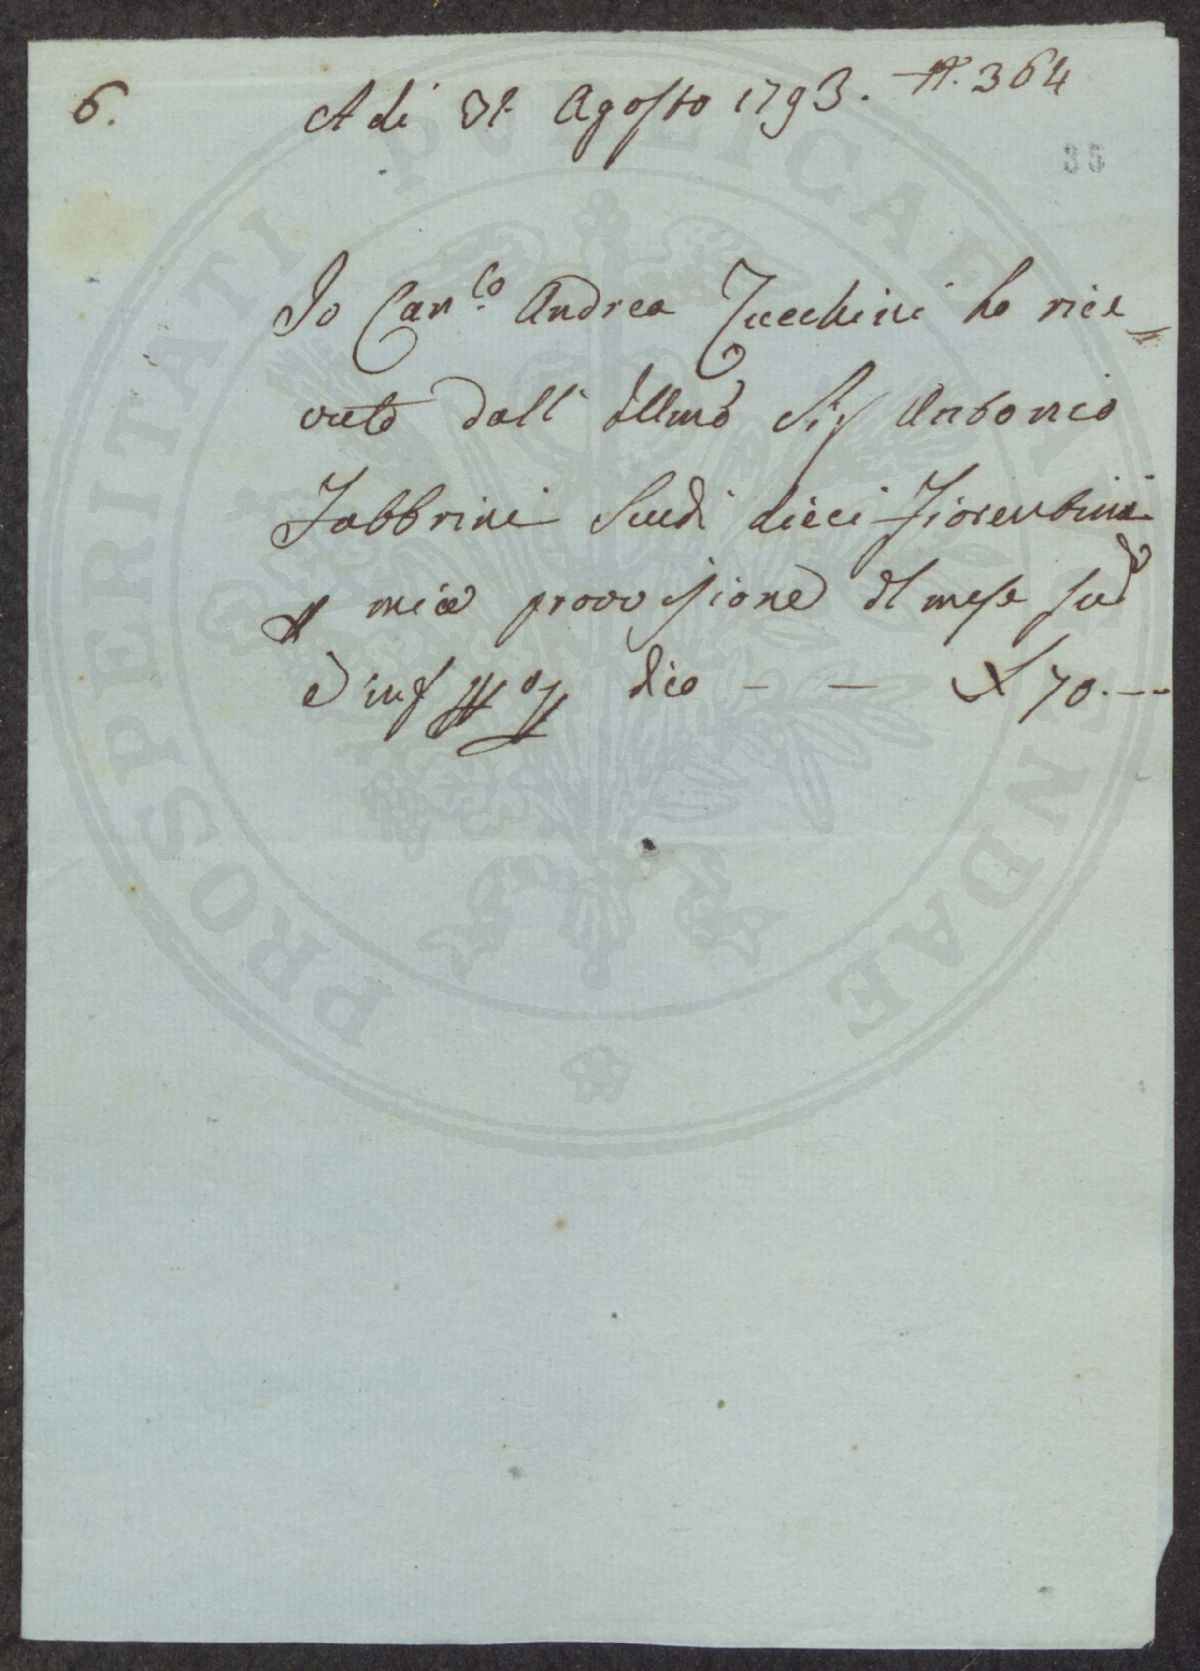 6.
A di 31. Agosto 1793.
N. 364
35
Io Can.co Andrea Zucchini ho rice=
vuto dall' Illmo Sig Antonio
Fabbrini Scudi dieci Fiorentini
p mia provvisione dl mese sud
e in dico - - £ 70.--
PROSPERITATI PVBLICAE AVGENDAE